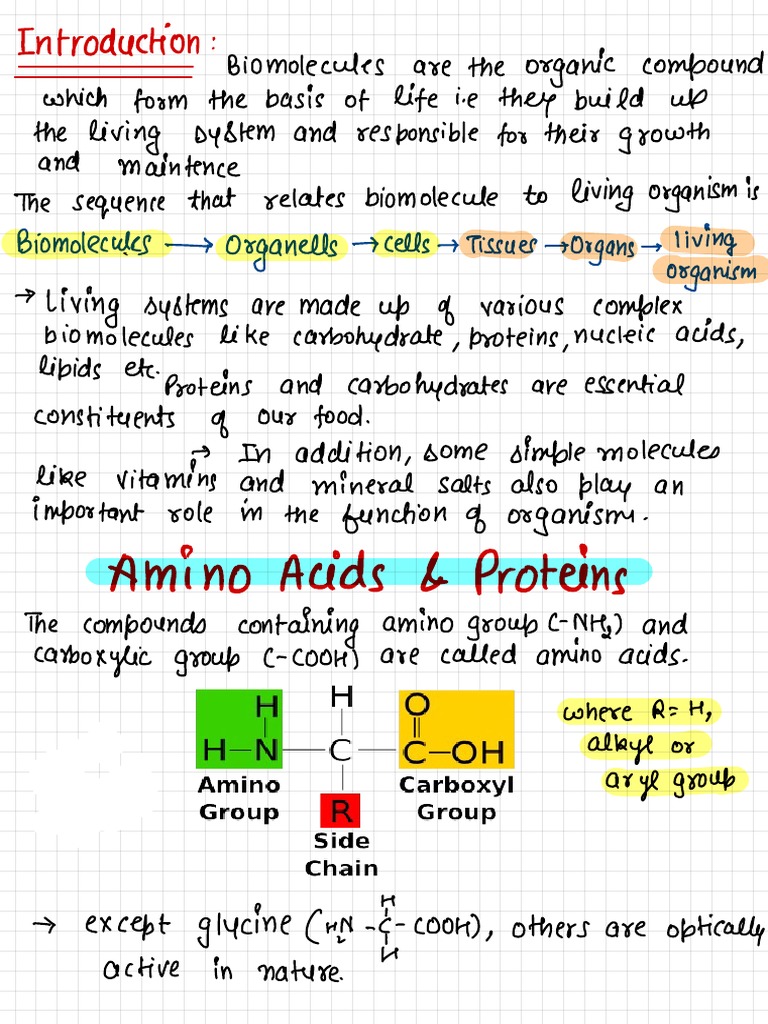 Introduction:
Biomolecules are the organic compound
which form the basis of life i.e they build up
the living system and responsible for their growth
and maintence
The sequence that relates biomolecule to living organism is
Biomolecules → Organells → cells → Tissues → Organs → living organism
→ Living systems are made up of various complex
biomolecules like carbohydrate, proteins, nucleic acids,
lipids etc.
Proteins and carbohydrates are essential
constituents of our food.
→ In addition, some simple molecules
like vitamins and mineral salts also play an
important role in the function of organism.
Amino Acids & Proteins
The compounds containing amino group (-NH2) and
carboxylic group (-COOH) are called amino acids.
H H O
H-N C C-OH
R
Amino Group
Side Chain
Carboxyl Group
where R = H,
alkyl or
aryl group
→ except glycine (H2N-C-COOH), others are optically
H
H
active in nature.